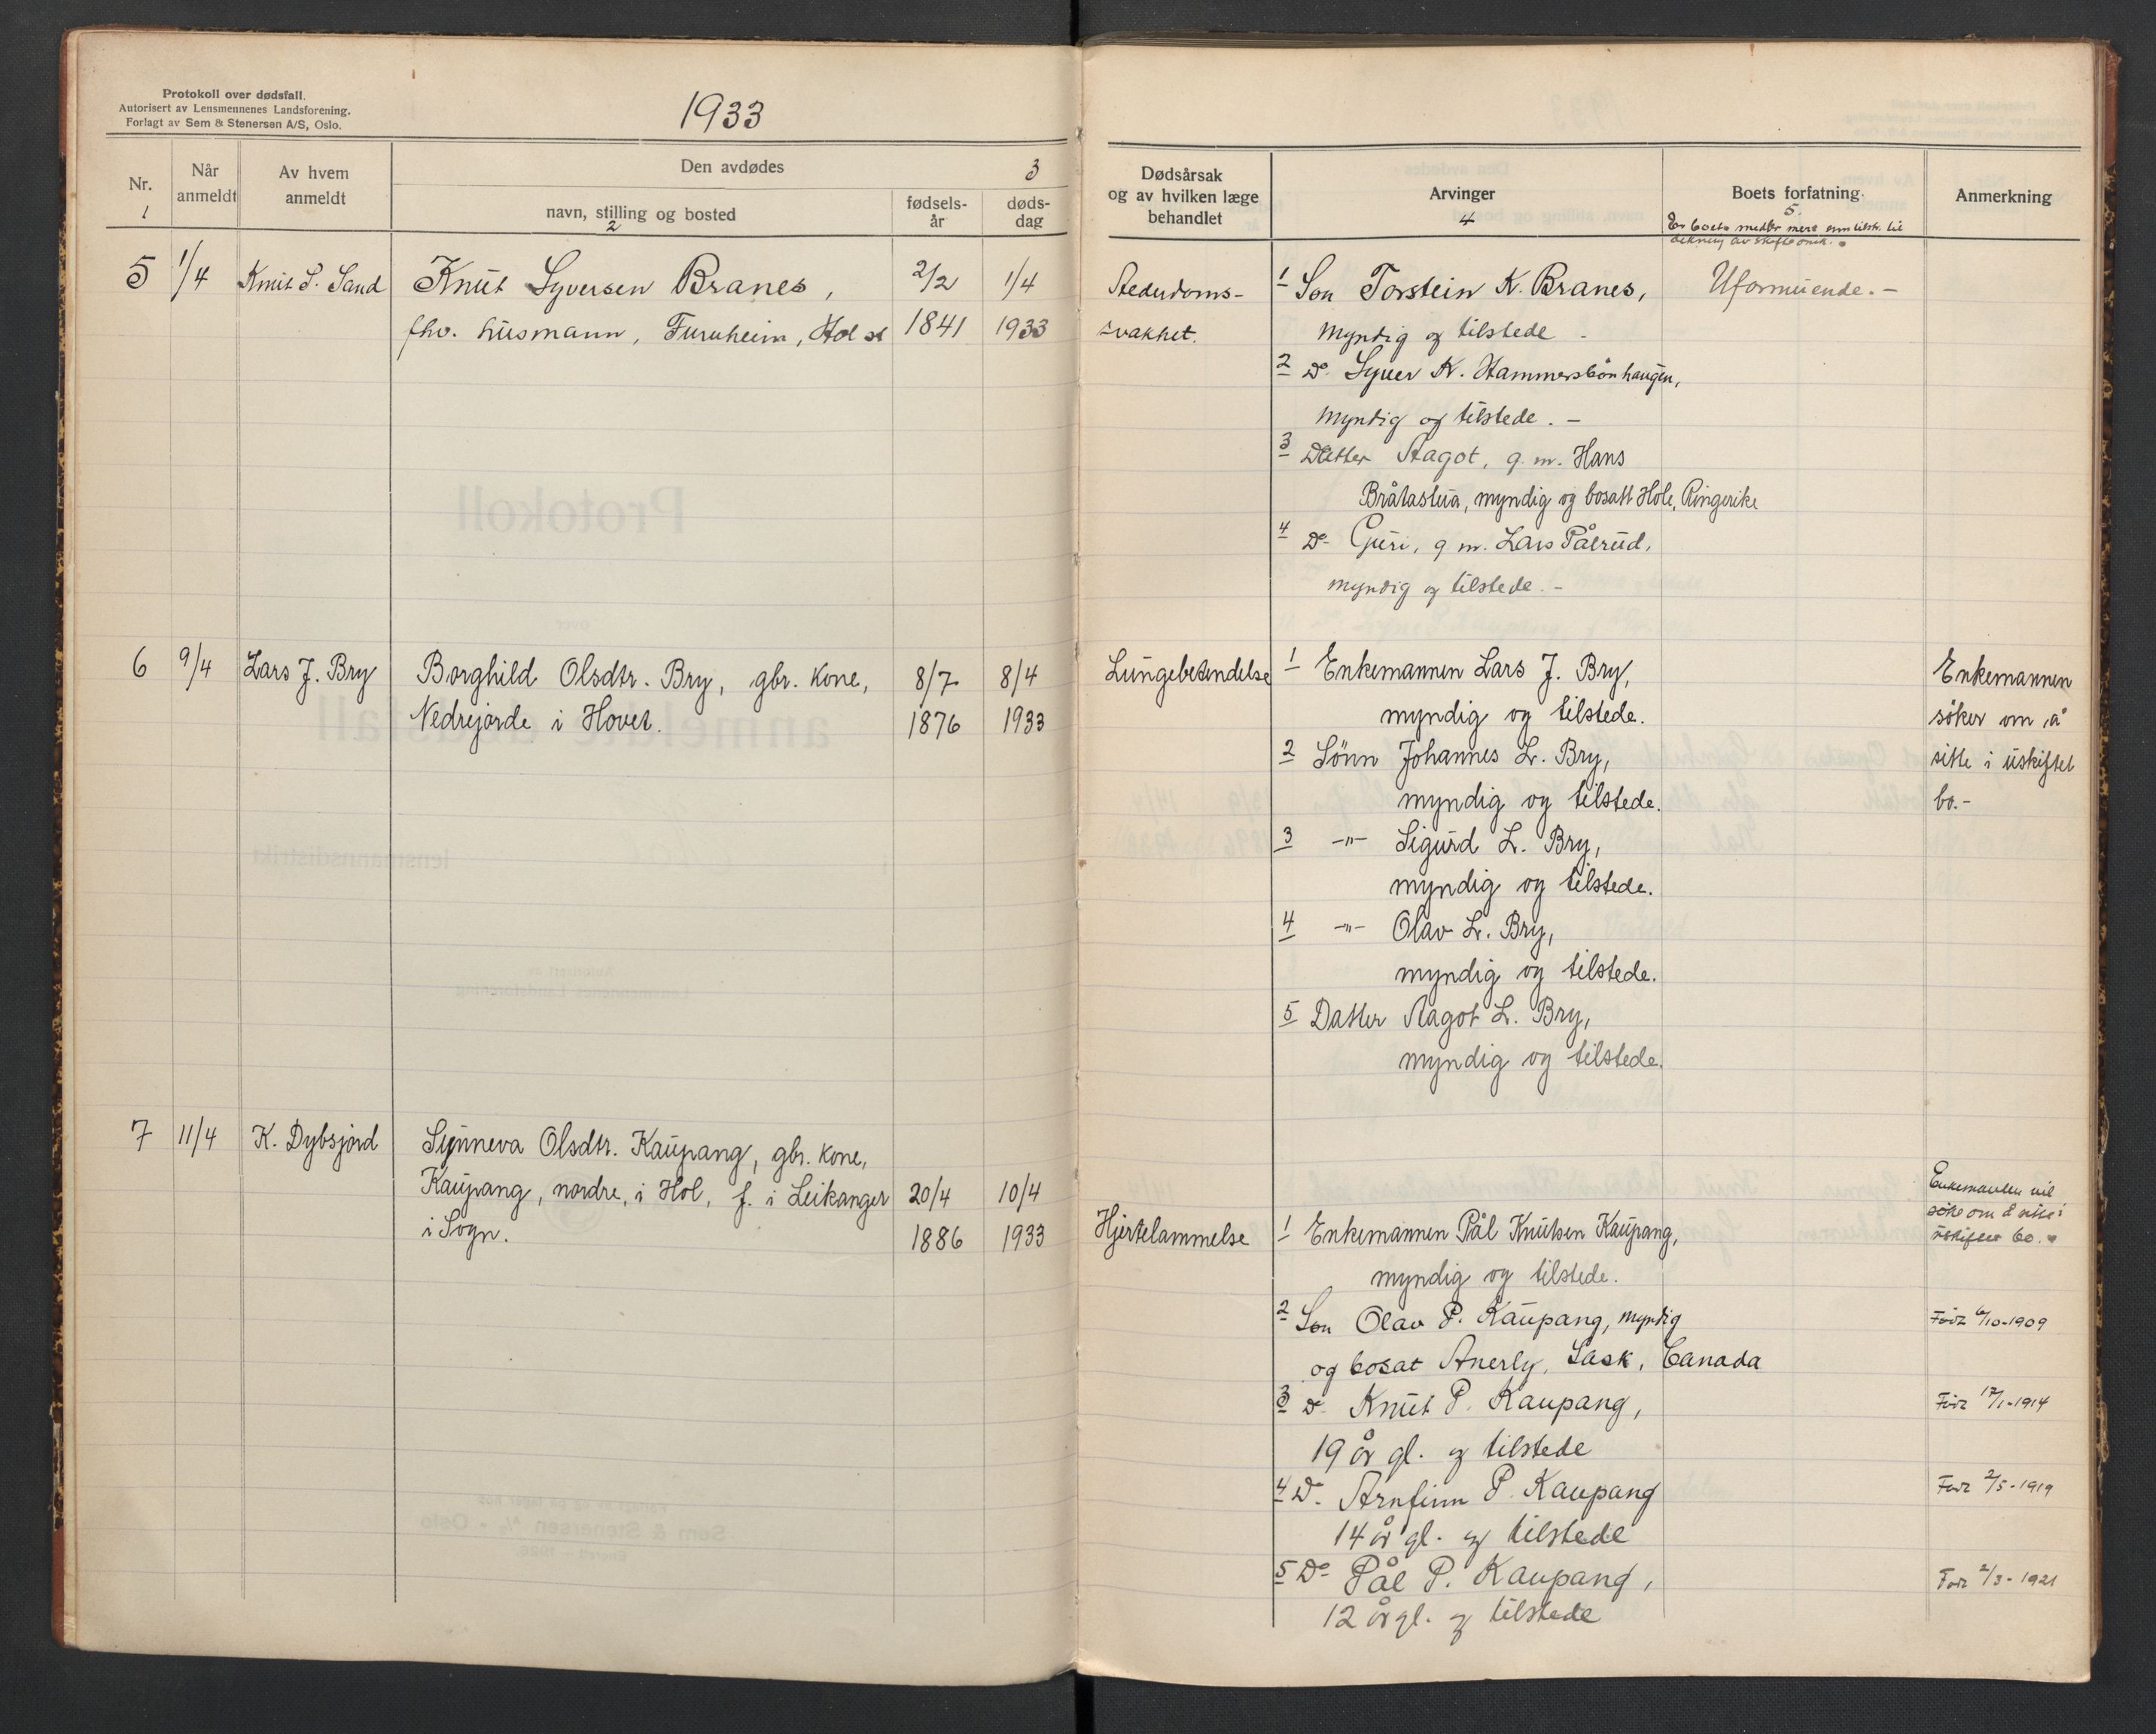 Protokoll over dødsfall.
Autorisert av Lensmennenes Landsforening.
Forlagt av Sem & Stenersen A/S, Oslo.
1933
Nr.
1
Når
anmeldt
Av hvem
anmeldt
Den avdødes
3
navn, stilling og bosted
2
fødsels-
år
døds-
dag
Dødsårsak
og av hvilken læge
behandlet
Arvinger
4
Boets forfatning.
5.
Er boets midler mere enn tilstr. til
dekning av skifteomk.
Anmerkning
5 1/4 Knut S. Sand Knut Syversen Branes, 2/2 1/4 Alederdoms- 1 Søn Torstein K. Branes, Uformuende. -
fhv. husmann, Furuheim, Hol st 1841 1933 svakhet. myndig og tilstede -
2 Do Syver K. Hammersbönhaugen,
myndig og tilstede. -
3 Datter Aagot, g. m. Hans
Bråtastua, myndig og bosatt Hole, Ringerike
4 Do Guri, g m. Lars Pålrud,
myndig og tilstede. -
6 9/4 Lars J. Bry Borghild Olsdtr. Bry, gbr. kone, 8/7 8/4 Lungebetendelse 1 Enkemannen Lars J. Bry, Enkemannen
Nedrejorde i Hovet. 1876 1933 myndig og tilstede. söker om å
2 Sönn Johannes L. Bry, sitte i uskiftet
myndig og tilstede. bo. -
3 -"- Sigurd L. Bry,
myndig og tilstede.
4 -"- Olav L. Bry,
myndig og tilstede.
5 Datter Aagot L. Bry,
myndig og tilstede.
7 11/4 K. Dybsjord Synneva Olsdtr. Kaupang, gbr. kone,
Kaupang, nordre, i Hol, f. i Leikanger 20/4 10/4 Enkemannen vil
i Sogn. 1886 1933 Hjertelammelse 1 Enkemannen Pål Knutsen Kaupang, søke om å sitte i
myndig og tilstede. uskiftet bo.
2 Søn Olav P. Kaupang, myndig Født 6/10-1909
og bosat Anerly, Sask, Canada
3 Do Knut P. Kaupang, Født 17/1-1914
19 år gl. og tilstede
4 Do Arnfinn P. Kaupang Født 2/5-1919
14 år gl. og tilstede
5 Do Pål P. Kaupang, Født 2/3-1921
12 år gl. og tilstede